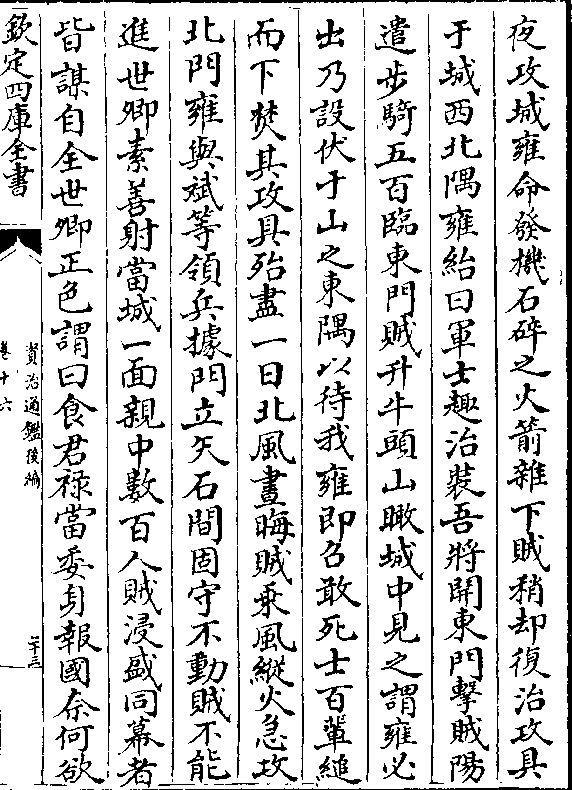 夜攻城雍命發機石碎之火箭雜下賊稍却復治攻具
于城西北隅雍紿曰軍士趣治裝吾將開東門擊賊陽
遣步騎五百臨東門賊升牛頭山瞰城中見之謂雍必
出乃設伏于山之東隅以待我雍即召敢死士百輩縋
而下焚其攻具殆盡一日北風晝晦賊乘風縱火急攻
北門雍與斌等領兵據門立矢石間固守不動賊不能
進世卿素善射當城一面親中數百人賊浸盛同幕者
皆謀自全世卿正色謂曰食君祿當委身報國奈何欲
欽定四庫全書
資治通鑑後編
卷十六
二十三